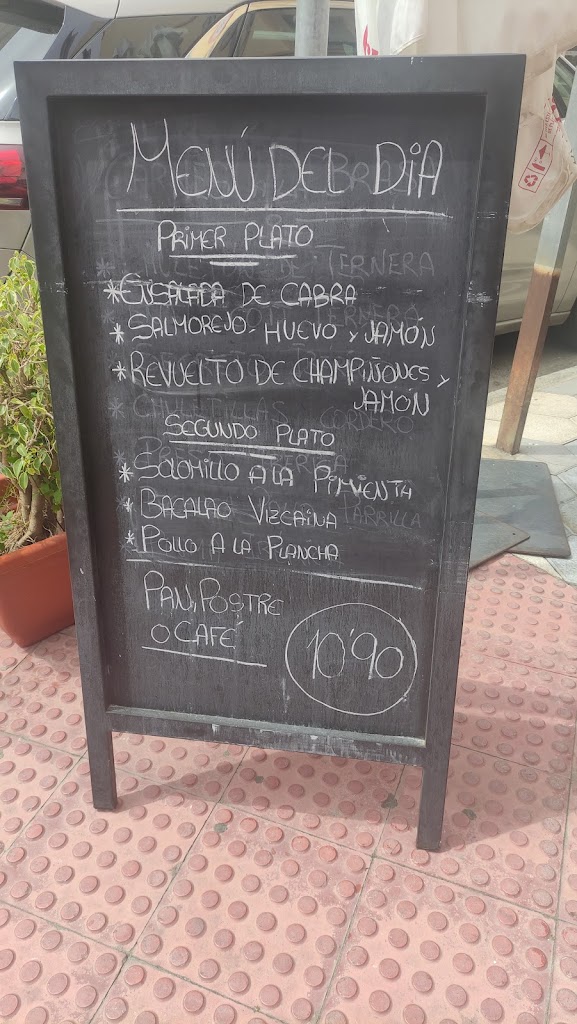 MENÚ DEL DIA
PRIMER PLATO
*ENSALADA DE CABRA
*SALMOREJO - HUEVO Y JAMÓN
*REVUELTO DE CHAMPIÑONES Y
JAMÓN
SEGUNDO PLATO
*SOLOMILLO A LA PIMIENTA
*BACALAO VIZCAINA
*POLLO A LA PLANCHA
PAN, POSTRE
O CAFÉ
10'90